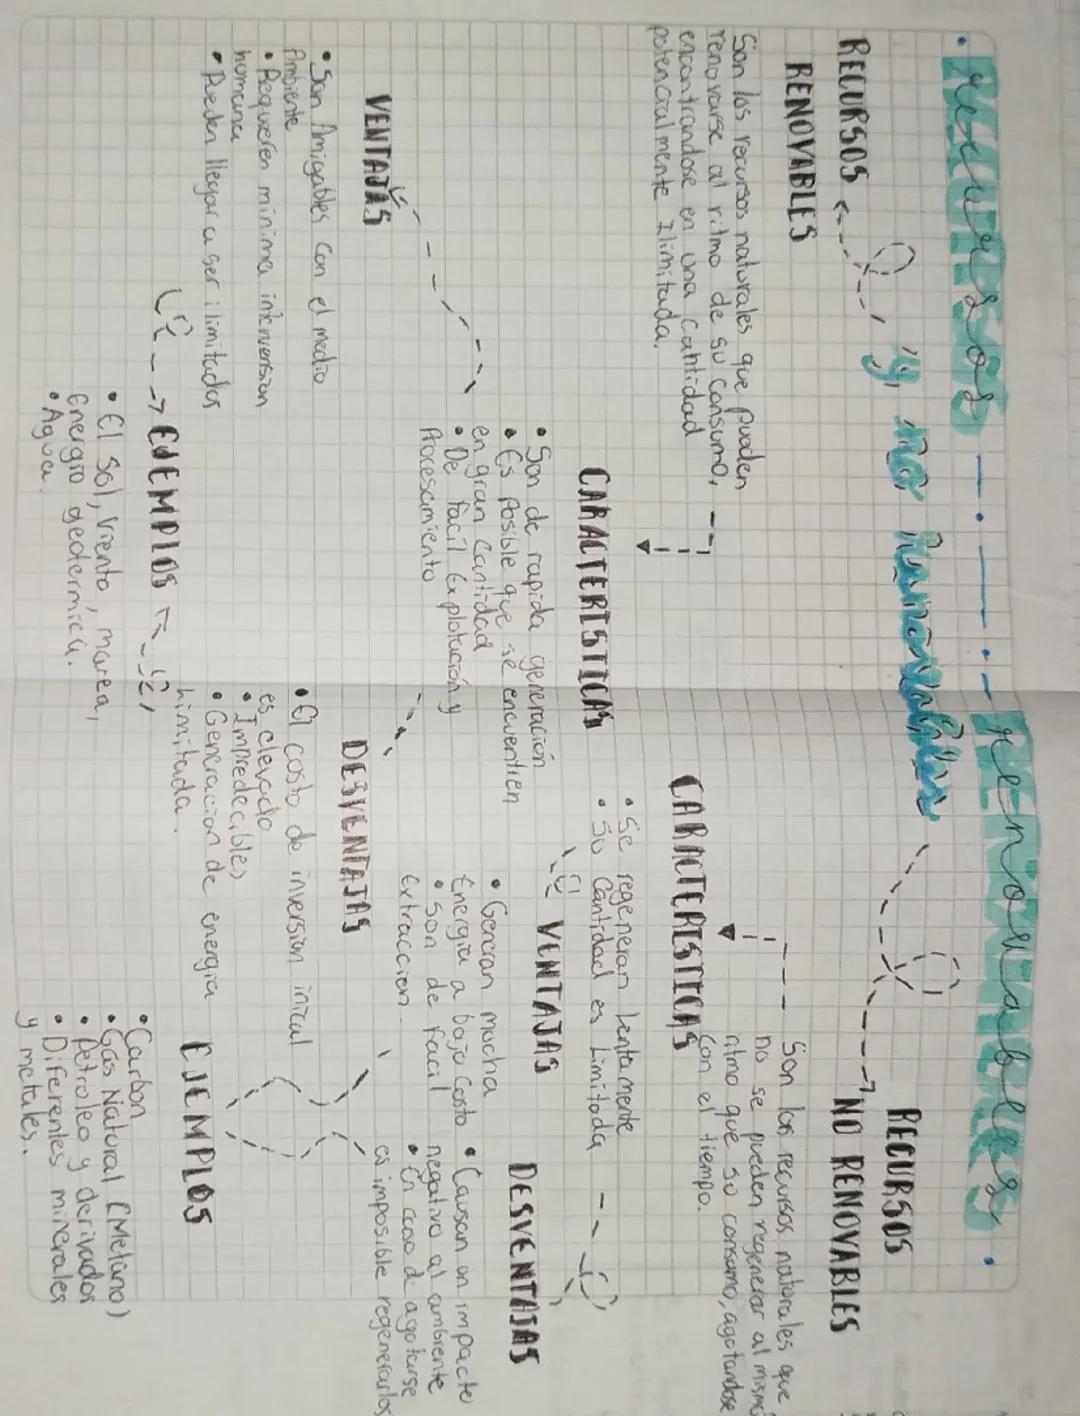 Recursos renovables.
y no Renovables
RECURSOS
RENOVABLES
Son los recursos naturales que pueden
renovarse al ritmo de su consumo,
encontrandose en una cantidad
potencialmente Ilimitada.
CARACTERISTICAS
• Son de rapida generación
• Es Posible que se encuentren
en gran Cantidad
• De facil Explotación y
Procesamiento
VENTAJAS
• Son Amigables con el medio
Ambiente
• Requieren minima intervension
humana
• Pueden llegar a ser ilimitados
DESVENTAJAS
• El costo de inversion inical
es elevado
• Impredecibles
• Generacion de energia
limitada.
EJEMPLOS
• El Sol, Viento, marea,
Energia geotermica.
• Agua.
RECURSOS
NO RENOVABLES
Son los recursos naturales que
no se pueden regenerar al mismo
ritmo que su consumo, agotandose
con el tiempo.
CARACTERISTICAS
• Se regeneran Lentamente
• Su Cantidad es Limitada
VENTAJAS
• Generan mucha
Energia a bajo Costo
• Son de facil
Extraccion.
DESVENTAJAS
• Causan un impacto
negativo al ambiente
• En caso de agotarse
es imposible regenerarlos
EJEMPLOS
• Carbon
• Gas Natural (Metano)
• Petroleo y derivados
• Diferentes minerales
y metales.